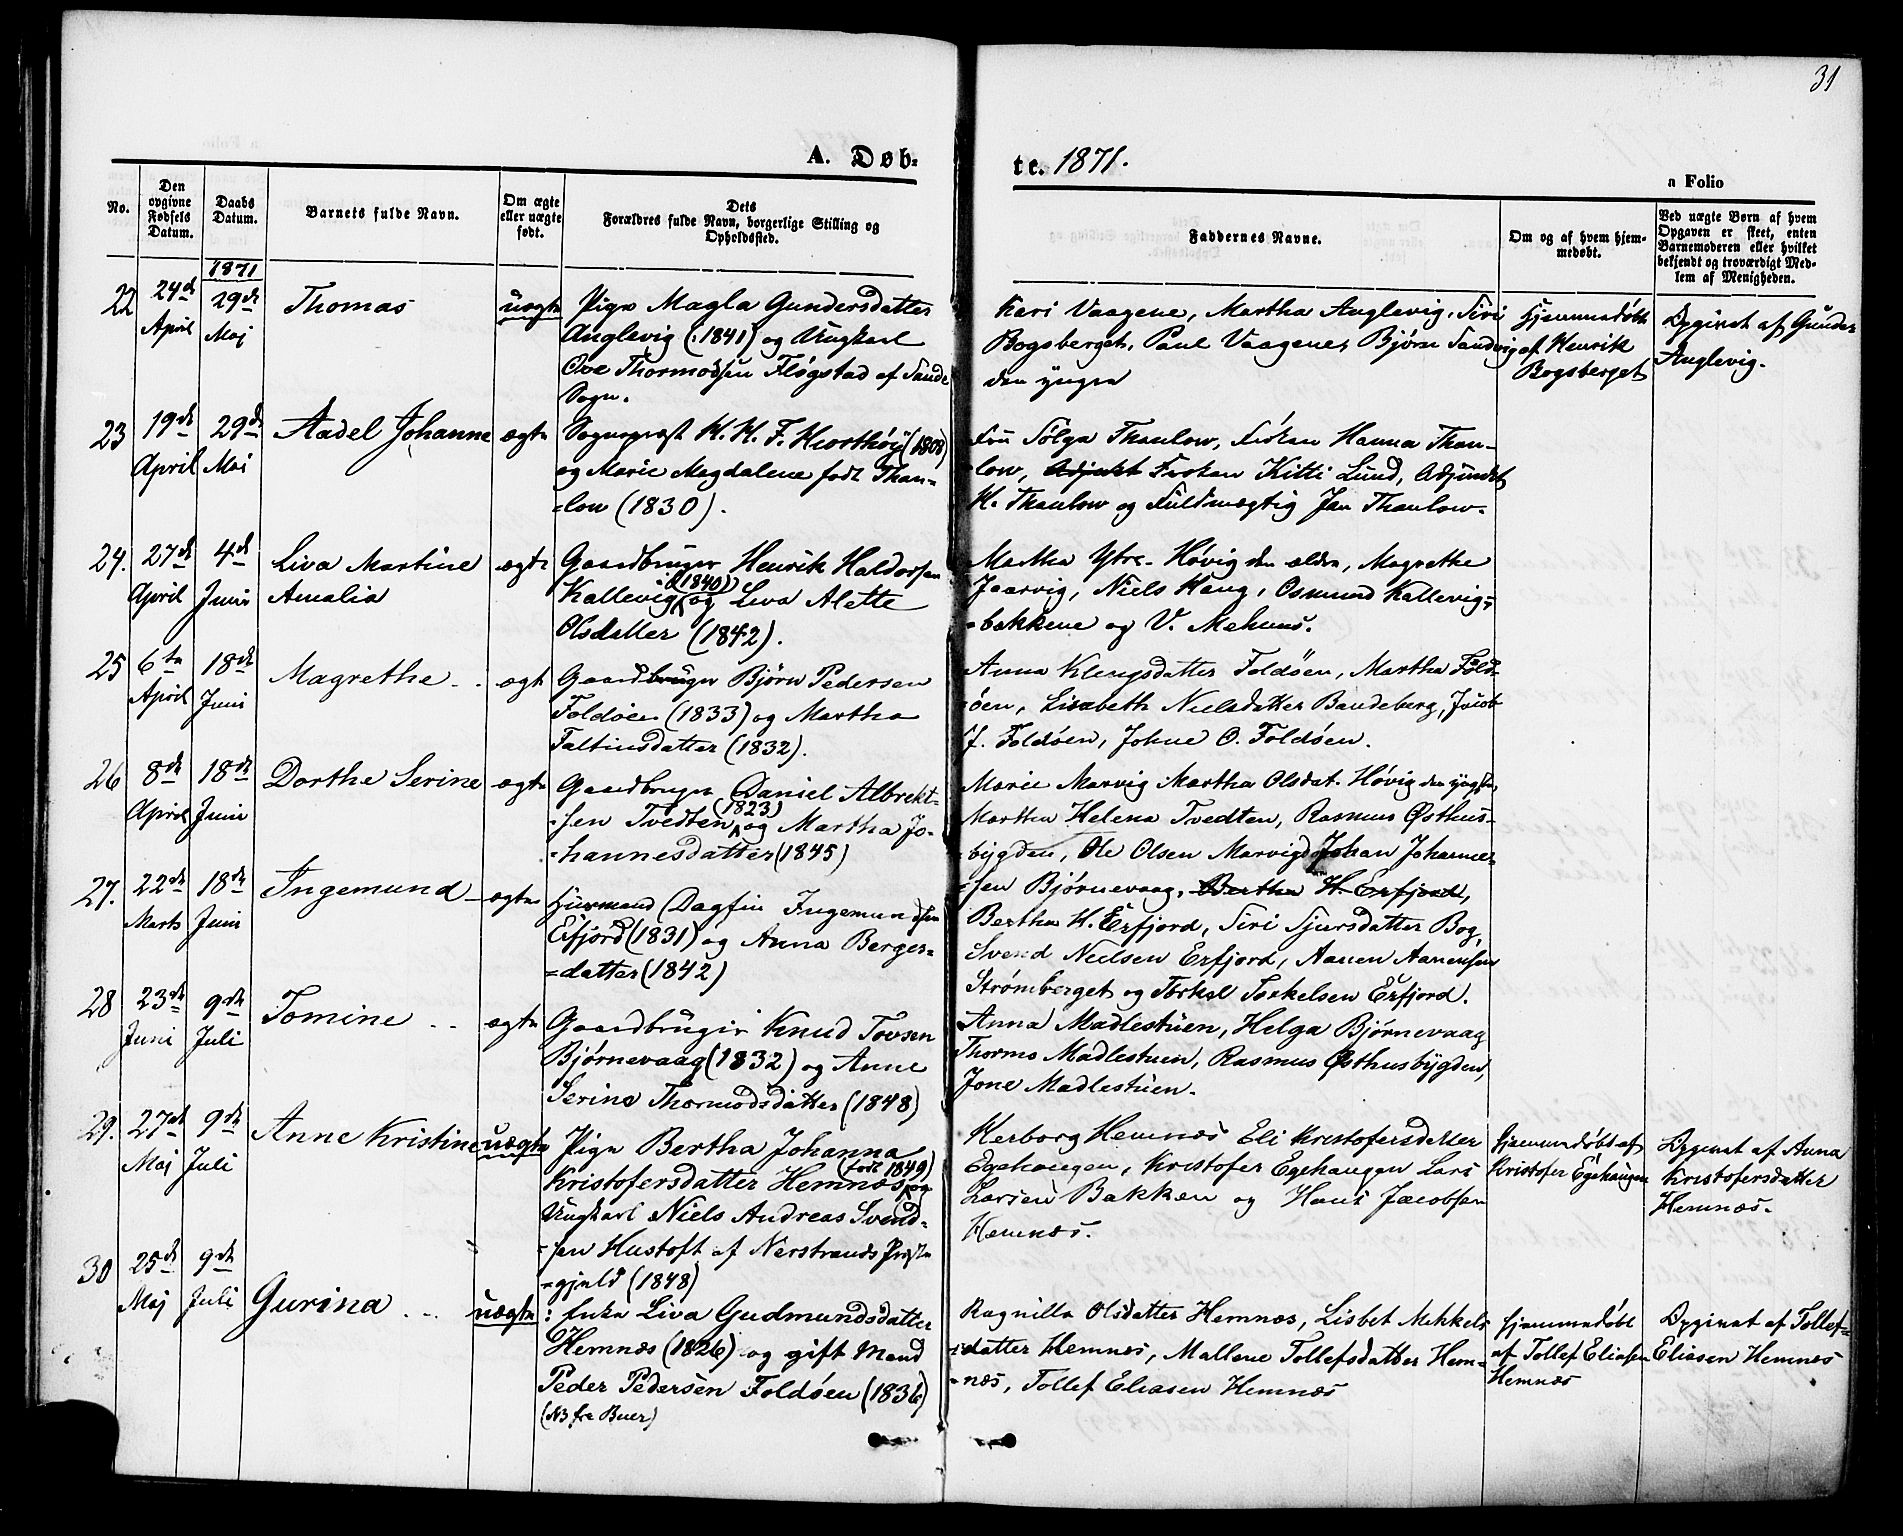 31
A. Døb-
te. 1871.
a Folio
No.
Den opgivne Fødsels Datum.
Daabs Datum.
Barnets fulde Navn.
Om ægte eller uægte født.
Dets Forældres fulde Navn, borgerlige Stilling og Opholdssted.
Faddernes Navne.
Om og af hvem hjemmedøbt.
Ved uægte Børn af hvem Opgaven er skeet, enten Barnemoderen eller hvilket bekjendt og troværdigt Medlem af Menigheden.
1871
22 24de April 29de Maj Thomas uægte
Pige Magla Gundersdatter
Anglevig (1841) og Ungkarl
Ove Thormodsen Fløgstad af Sande
Sogn.
Kari Vaagene, Martha Anglevig, Siri
Bogsberget, Paul Vaagene, Bjørn Sandvig
den yngre
Hjemmedøbt
af Henrik
Bogsberget
Opgivet af Gunder
Anglevig.
23 19de April 29de Maj Aadel Johanne ægte
Sognepræst H. H. F. Hiorthøy (1808)
og Marie Magdalene født Thau-
-low (1830).
Fru Sølga Thaulow, Frøken Hanna Thau-
-low, Adjunkt Frøken Kitti Lund, Adjunkt
H. Thaulow og Fuldmægtig Jan Thaulow.
24. 27de April 4de Juni Liva Martine
Amalia ægte
Gaardbruger Henrik Haldorsen
Kallevig (1840) og Liva Alette
Olsdatter (1842).
Martha Ytre-Høvig den ældre, Magrethe
Jaarvig, Niels Haug, Osmund Kallevig-
-bakkene og V. Mehuus.
25 6te April 18de Juni Magrethe ægte
Gaardbruger Bjørn Pedersen
Foldøen (1833) og Martha
Faltinsdatter (1832).
Anna Klengsdatter Foldøen, Martha Fold-
-øen, Lisabeth Nielsdatter Bandeberg, Jacob
J. Foldøen, Johne O. Foldøen.
26 8de April 18de Juni Dorthe Serine ægte
Gaardbruger Daniel Albrekt-
-sen Tvedten (1823) og Martha Jo-
-hannesdatter (1845)
Marie Marvig Martha Olsdat. Høvig den yngste,
Martha Helena Tvedten, Rasmus Østhus-
-bygden, Ole Olsen Marvig Johan Johanne-
-sen Bjørnevaag, Bertha H. Erfjord,
27. 22de Marts 18de Juni Ingemund ægte
Huusmand Dagfin Ingemundsen
Erfjord (1831) og Anna Berges-
-datter (1842)
Bertha H. Erfjord, Siri Sjursdatter Bog,
Svend Nielsen Erfjord, Aanen Aanensen
Strømberget og Torkel Torkelsen Erfjord.
28 23de Juni 9de Juli Tomine ægte
Gaardbruger Knud Tovsen
Bjørnevaag (1832) og Anne
Serine Thormodsdatter (1848)
Anna Madlestuen, Helga Bjørnevaag
Thormo Madlestuen, Rasmus Østhusbygden,
Jone Madlestuen.
29. 27de Maj 9de Juli Anne Kristine uægte
Pige Bertha Johanna
Kristofersdatter Hemnæs (født 1849) og
Ungkarl Niels Andreas Svend-
-sen Hustoft af Nerstrands Præste-
-gjeld (1848)
Herborg Hemnæs Eli Kristofersdatter
Egehaugen, Kristofer Egehaugen Lars
Larsen Bakken og Hans Jacobsen
Hemnæs.
hjemmedøbt af
Kristofer Egehaugen
Opgivet af Anna
Kristofersdatter
Hemnæs.
30 25de Maj 9de Juli Gurina uægte
: Enke Liva Gudmundsdatter
Hemnæs (1826) og gift Mand
Peder Pedersen Foldøen (1836)
(N3 fra Buer)
Ragnilla Olsdatter Hemnæs, Lisbet Mikkels-
-datter Hemnæs, Mallene Tollefsdatter Hem-
-næs, Tollef Eliasen Hemnæs
hjemmedøbt
af Tollef Eliasen
Hemnæs
Opgivet af Tollef
Eliasen Hemnæs